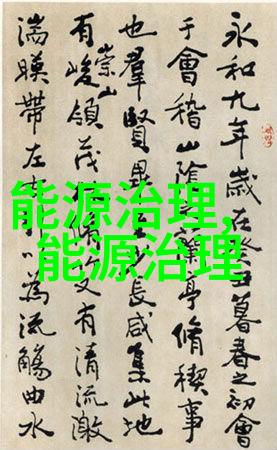 永和九年歲在癸丑暮春之初會
于會稽山陰蘭亭脩稧事
也羣賢畢長咸集此地
有崇山峻領茂又有清流激
湍暎帶左為流觴曲水
能源治理,
能源治理